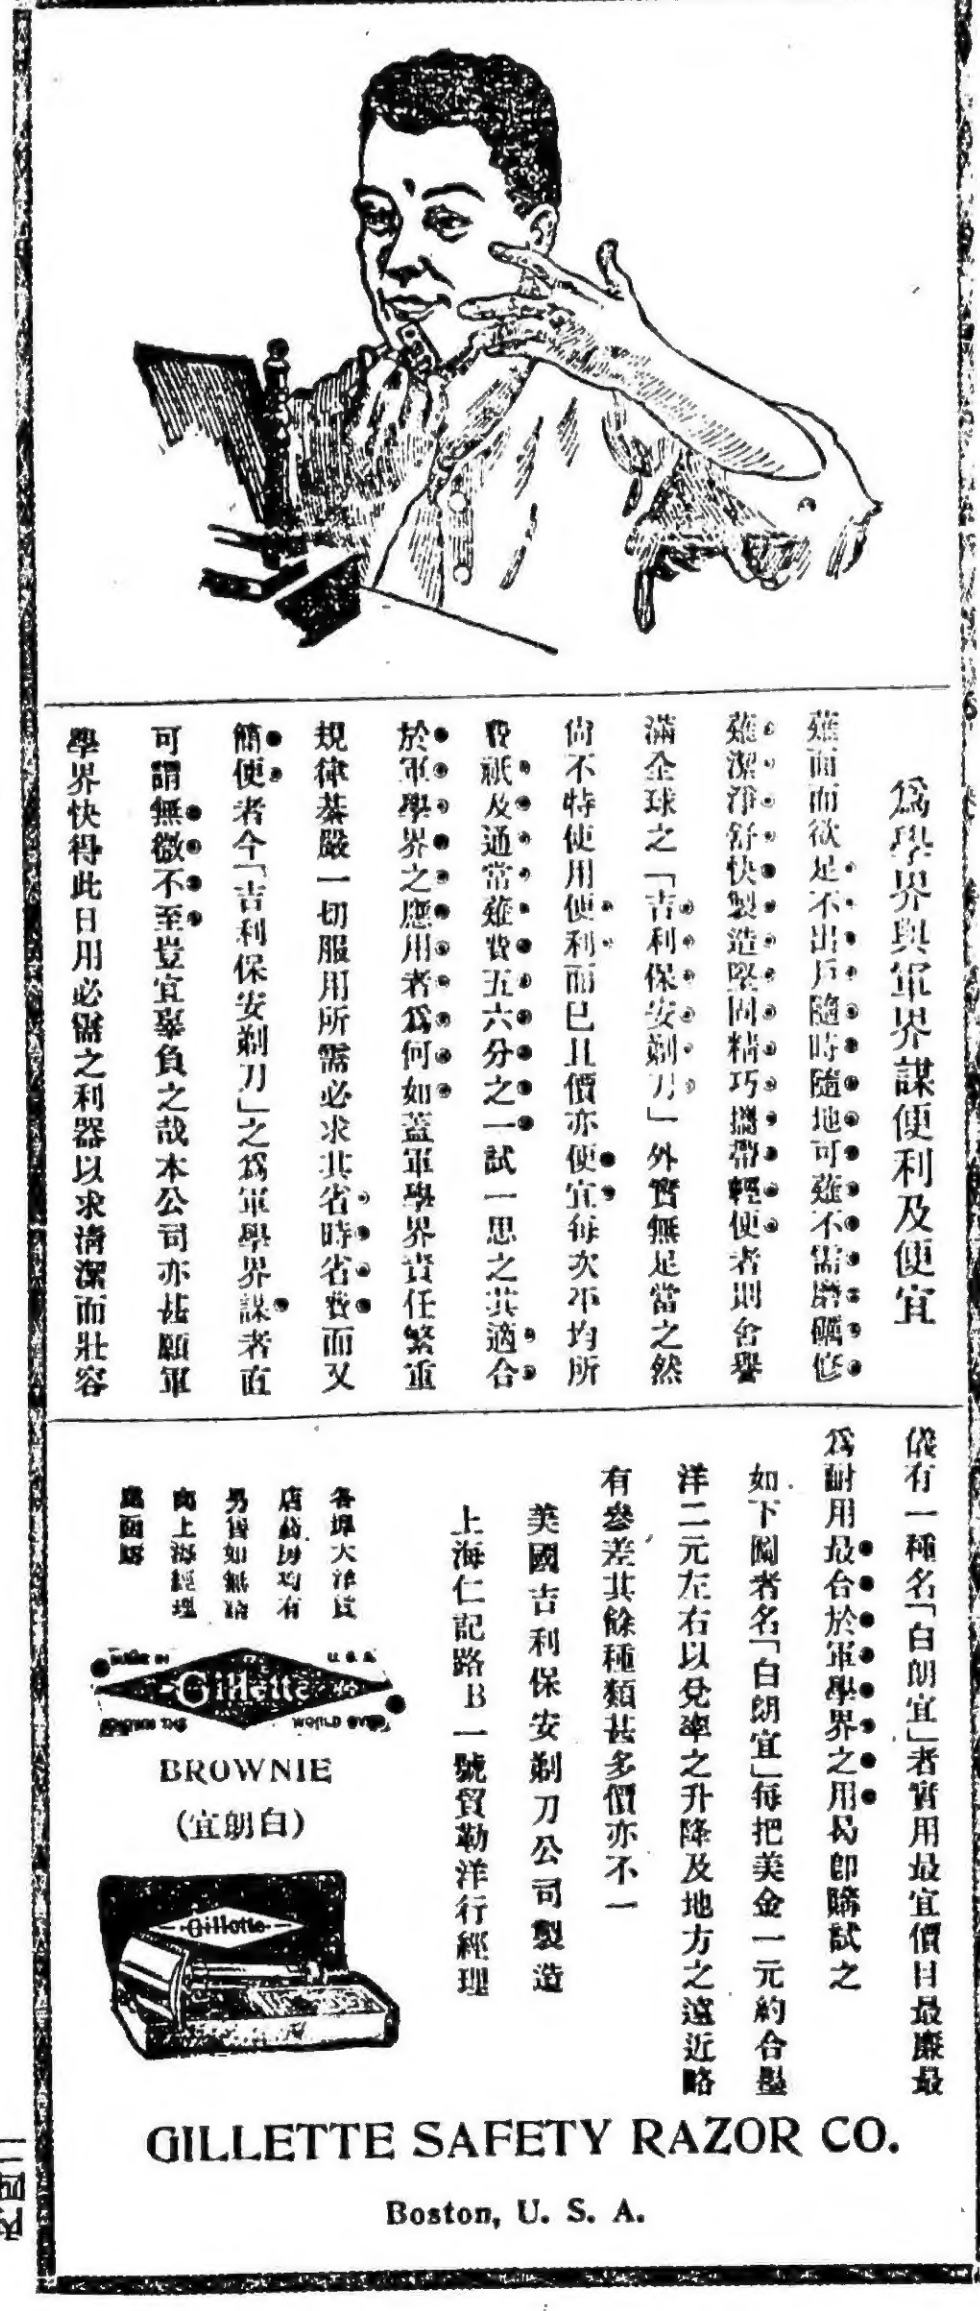 爲學界與軍界謀便利及便宜
薙面而欲足不出戶隨時隨地可薙不需磨礪修
薙潔淨舒快製造堅固精巧攜帶輕便者則舍譽
滿全球之「吉利保安剃刀」外實無足當之然
尙不特使用便利而已且價亦便宜每次平均所
費祇及通常薙費五六分之一試一思之其適合
於軍學界之應用者爲何如蓋軍學界責任繁重
規律綦嚴一切服用所需必求其省時省費而又
簡便者今「吉利保安剃刀」之爲軍學界謀者直
可謂無微不至豈宜辜負之哉本公司亦甚願軍
學界快得此日用必需之利器以求淸潔而壯容
儀有一種名「白朗宜」者實用最宜價目最廉最
爲耐用最合於軍學界之用曷卽購試之
如下圖者名「白朗宜」每把美金一元約合墨
洋二元左右以兌率之升降及地方之遠近略
有參差其餘種類甚多價亦不一
美國吉利保安剃刀公司製造
上海仁記路B一號貿勒洋行經理
各埠大洋貨
店藥房均有
另售如無請
向上海經理
處函購
MADE IN U.S.A.
Gillette
KNOWN THE WORLD OVER
BROWNIE
(宜朗白)
Gillette
GILLETTE SAFETY RAZOR CO.
Boston, U. S. A.
內四二